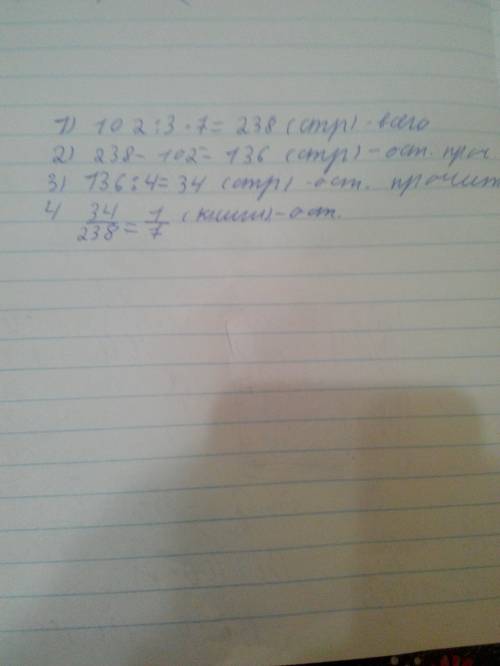 1) 102 : 3 · 7 = 238 (стр) - всего
2) 238 - 102 = 136 (стр) - ост. проч.
3) 136 : 4 = 34 (стр) - ост. прочит
4 34/238 = 1/7 (книги) - ост.